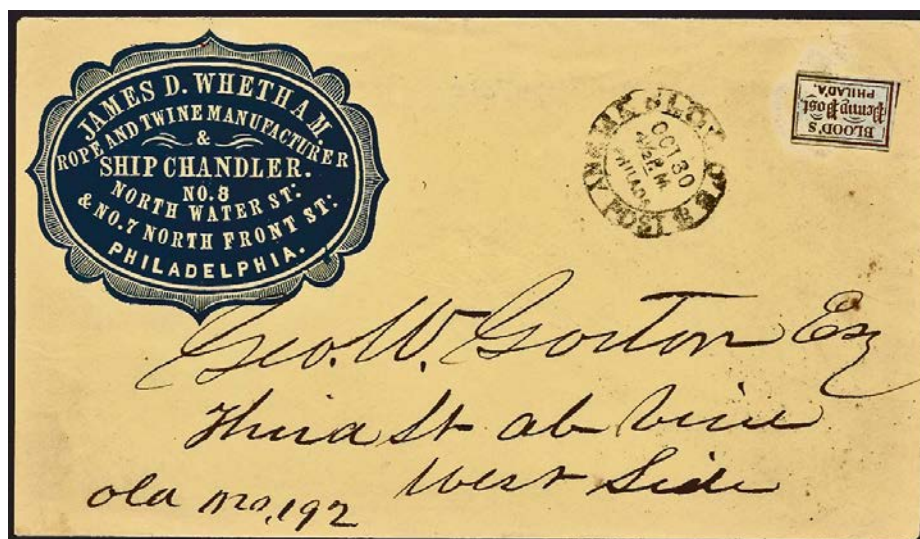 JAMES D. WHETHAM
ROPE AND TWINE MANUFACTURER
&
SHIP CHANDLER.
NO. 8
NORTH WATER ST:
& NO. 7 NORTH FRONT ST:
PHILADELPHIA.
OCT 30
4½ P.M
PHILADA
BLOOD'S
Penny Post
PHILADA.
Geo. W. Gorton Esq
Third St ab Vine
West Side
old no. 192